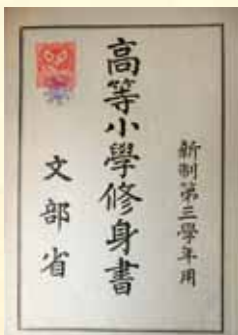 新制第三學年用
高等小學修身書
文部省